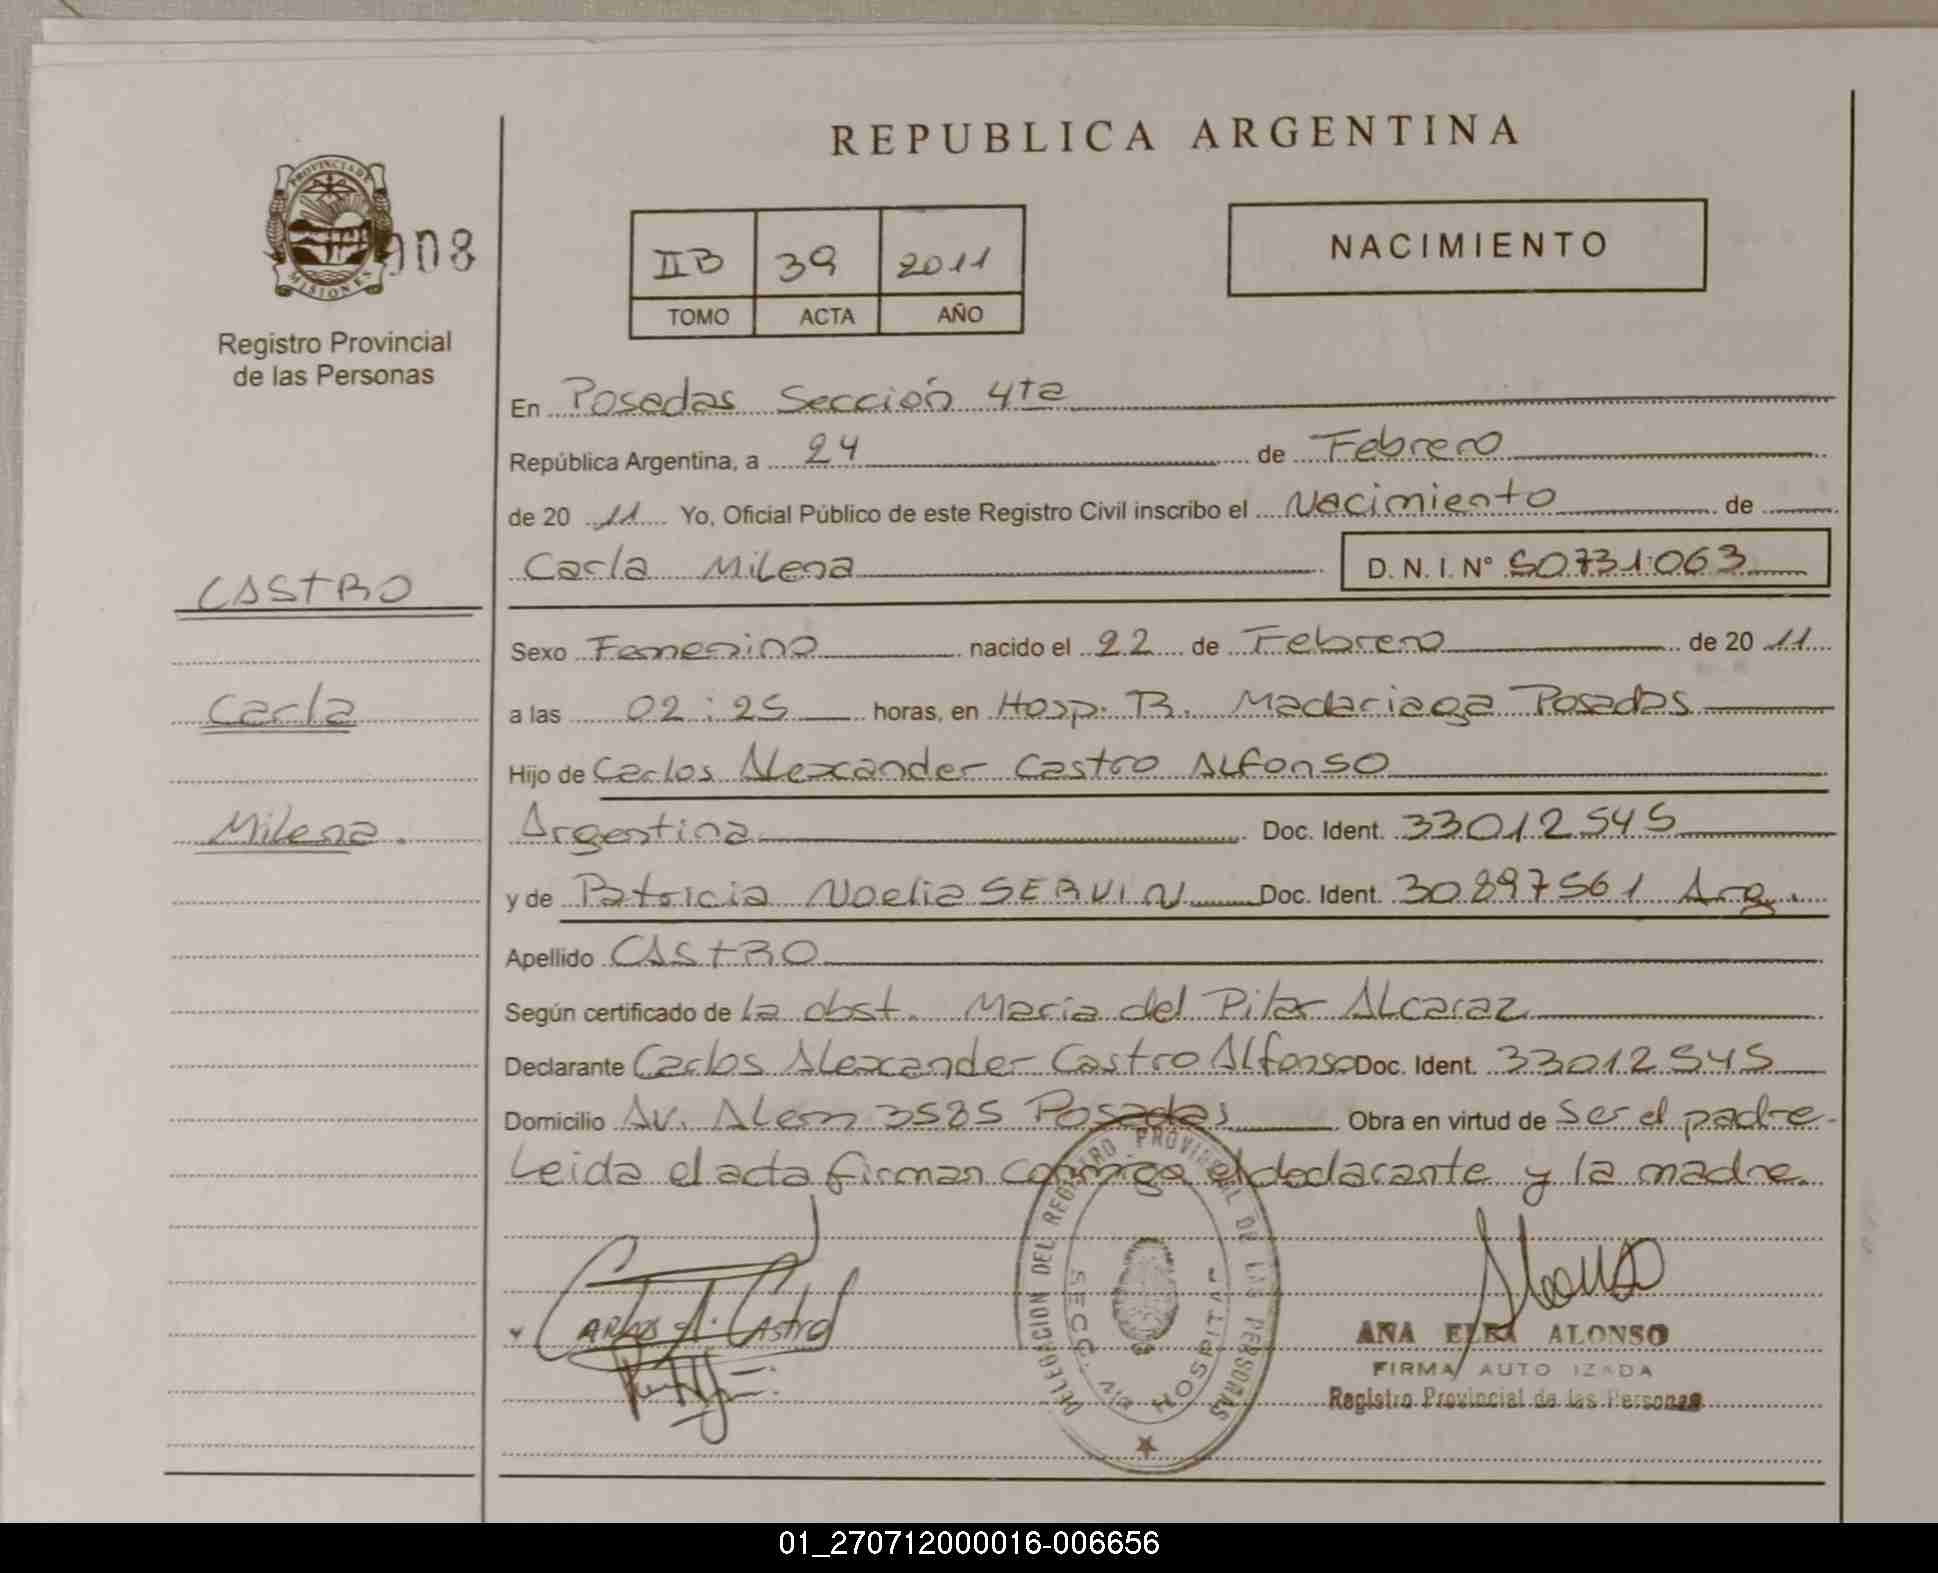 REPUBLICA ARGENTINA
PROVINCIA DE
MISIONES
008
Registro Provincial
de las Personas
IIB 39 2011
TOMO ACTA AÑO
NACIMIENTO
En Posadas Sección 4ta
República Argentina, a 24 de Febrero
de 20 11 Yo, Oficial Público de este Registro Civil inscribo el Nacimiento de
Carla Milena D. N. I. N° 50731063
CASTRO
Sexo Femenino nacido el 22 de Febrero de 20 11
Carla
a las 02:25 horas, en Hosp. R. Madariaga Posadas
Hijo de Carlos Alexander Castro Alfonso
Milena.
Argentina Doc. Ident. 33012545
y de Patricia Noelia SERVIN Doc. Ident. 30897561 Arg.
Apellido CASTRO
Según certificado de la obst. Maria del Pilar Alcaraz
Declarante Carlos Alexander Castro Alfonso Doc. Ident. 33012545
Domicilio Av. Alem 3585 Posadas Obra en virtud de ser el padre
Leida el acta firman conmigo el declarante y la madre.
DELEGACION DEL REGISTRO PROVINCIAL DE LAS PERSONAS
SECC. HOSPITAL
Carlos A. Castro
Alonso
ANA ELBA ALONSO
FIRMA AUTO IZADA
Registro Provincial de las Personas
01_270712000016-006656